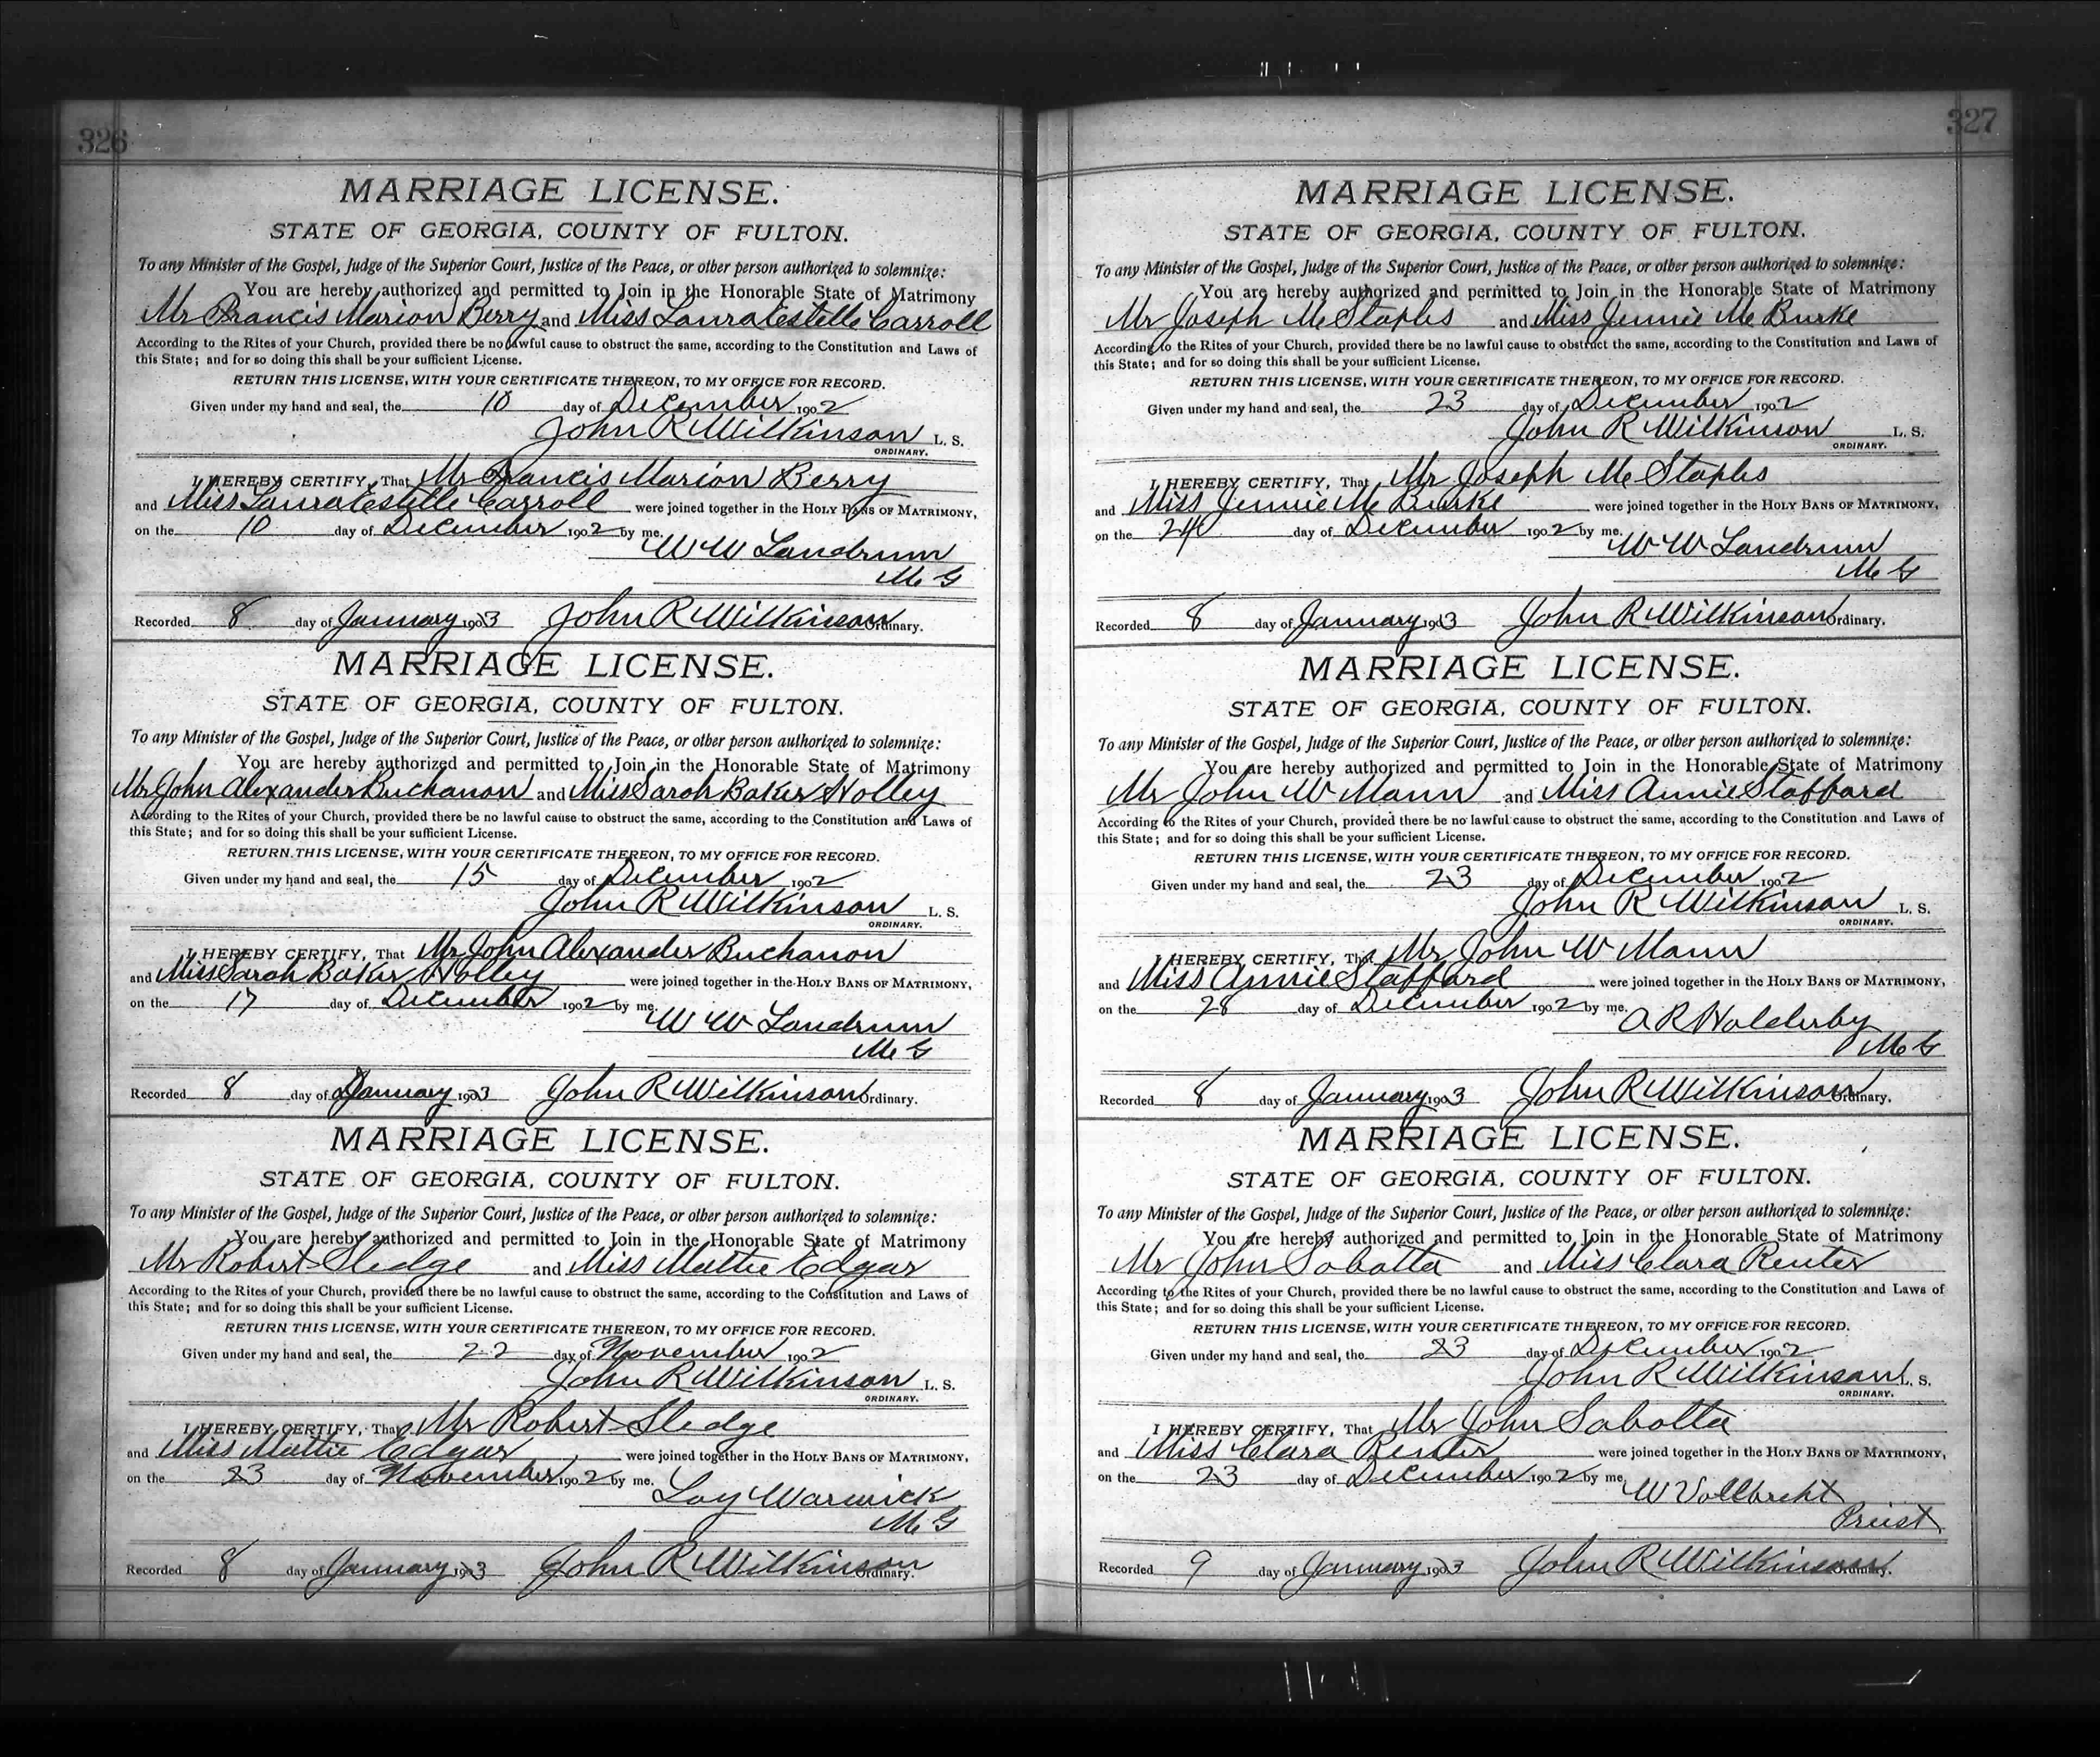 326
MARRIAGE LICENSE.
STATE OF GEORGIA, COUNTY OF FULTON.
To any Minister of the Gospel, Judge of the Superior Court, Justice of the Peace, or other person authorized to solemnize:
You are hereby authorized and permitted to Join in the Honorable State of Matrimony
Mr Francis Marion Berry and Miss Laura Estelle Carroll
According to the Rites of your Church, provided there be no lawful cause to obstruct the same, according to the Constitution and Laws of
this State; and for so doing this shall be your sufficient License.
RETURN THIS LICENSE, WITH YOUR CERTIFICATE THEREON, TO MY OFFICE FOR RECORD.
Given under my hand and seal, the 10 day of December 1902
John R Wilkinson L. S.
ORDINARY.
I HEREBY CERTIFY, That Mr Francis Marion Berry
and Miss Laura Estelle Carroll were joined together in the HOLY BANS OF MATRIMONY,
on the 10 day of December 1902 by me.
W W Landrum
M G
Recorded 8 day of January 1903 John R Wilkinson Ordinary.
MARRIAGE LICENSE.
STATE OF GEORGIA, COUNTY OF FULTON.
To any Minister of the Gospel, Judge of the Superior Court, Justice of the Peace, or other person authorized to solemnize:
You are hereby authorized and permitted to Join in the Honorable State of Matrimony
Mr John Alexander Buchanon and Miss Sarah Baker Holley
According to the Rites of your Church, provided there be no lawful cause to obstruct the same, according to the Constitution and Laws of
this State; and for so doing this shall be your sufficient License.
RETURN THIS LICENSE, WITH YOUR CERTIFICATE THEREON, TO MY OFFICE FOR RECORD.
Given under my hand and seal, the 15 day of December 1902
John R Wilkinson L. S.
ORDINARY.
I HEREBY CERTIFY, That Mr John Alexander Buchanon
and Miss Sarah Baker Holley were joined together in the HOLY BANS OF MATRIMONY,
on the 17 day of December 1902 by me.
W W Landrum
M G
Recorded 8 day of January 1903 John R Wilkinson Ordinary.
MARRIAGE LICENSE.
STATE OF GEORGIA, COUNTY OF FULTON.
To any Minister of the Gospel, Judge of the Superior Court, Justice of the Peace, or other person authorized to solemnize:
You are hereby authorized and permitted to Join in the Honorable State of Matrimony
Mr Robert Sledge and Miss Mattie Edgar
According to the Rites of your Church, provided there be no lawful cause to obstruct the same, according to the Constitution and Laws of
this State; and for so doing this shall be your sufficient License.
RETURN THIS LICENSE, WITH YOUR CERTIFICATE THEREON, TO MY OFFICE FOR RECORD.
Given under my hand and seal, the 22 day of November 1902
John R Wilkinson L. S.
ORDINARY.
I HEREBY CERTIFY, That Mr Robert Sledge
and Miss Mattie Edgar were joined together in the HOLY BANS OF MATRIMONY,
on the 23 day of November 1902 by me.
Loy Warwick
M G
Recorded 8 day of January 1903 John R Wilkinson Ordinary.
327
MARRIAGE LICENSE.
STATE OF GEORGIA, COUNTY OF FULTON.
To any Minister of the Gospel, Judge of the Superior Court, Justice of the Peace, or other person authorized to solemnize:
You are hereby authorized and permitted to Join in the Honorable State of Matrimony
Mr Joseph M Staples and Miss Jennie M Burke
According to the Rites of your Church, provided there be no lawful cause to obstruct the same, according to the Constitution and Laws of
this State; and for so doing this shall be your sufficient License.
RETURN THIS LICENSE, WITH YOUR CERTIFICATE THEREON, TO MY OFFICE FOR RECORD.
Given under my hand and seal, the 23 day of December 1902
John R Wilkinson L. S.
ORDINARY.
I HEREBY CERTIFY, That Mr Joseph M Staples
and Miss Jennie M Burke were joined together in the HOLY BANS OF MATRIMONY,
on the 24 day of December 1902 by me.
W W Landrum
M G
Recorded 8 day of January 1903 John R Wilkinson Ordinary.
MARRIAGE LICENSE.
STATE OF GEORGIA, COUNTY OF FULTON.
To any Minister of the Gospel, Judge of the Superior Court, Justice of the Peace, or other person authorized to solemnize:
You are hereby authorized and permitted to Join in the Honorable State of Matrimony
Mr John W Mann and Miss Annie Staffard
According to the Rites of your Church, provided there be no lawful cause to obstruct the same, according to the Constitution and Laws of
this State; and for so doing this shall be your sufficient License.
RETURN THIS LICENSE, WITH YOUR CERTIFICATE THEREON, TO MY OFFICE FOR RECORD.
Given under my hand and seal, the 23 day of December 1902
John R Wilkinson L. S.
ORDINARY.
I HEREBY CERTIFY, That Mr John W Mann
and Miss Annie Staffard were joined together in the HOLY BANS OF MATRIMONY,
on the 28 day of December 1902 by me.
A R Holderby
M G
Recorded 8 day of January 1903 John R Wilkinson Ordinary.
MARRIAGE LICENSE.
STATE OF GEORGIA, COUNTY OF FULTON.
To any Minister of the Gospel, Judge of the Superior Court, Justice of the Peace, or other person authorized to solemnize:
You are hereby authorized and permitted to Join in the Honorable State of Matrimony
Mr John Sabotta and Miss Clara Renter
According to the Rites of your Church, provided there be no lawful cause to obstruct the same, according to the Constitution and Laws of
this State; and for so doing this shall be your sufficient License.
RETURN THIS LICENSE, WITH YOUR CERTIFICATE THEREON, TO MY OFFICE FOR RECORD.
Given under my hand and seal, the 23 day of December 1902
John R Wilkinson L. S.
ORDINARY.
I HEREBY CERTIFY, That Mr John Sabotta
and Miss Clara Renter were joined together in the HOLY BANS OF MATRIMONY,
on the 23 day of December 1902 by me
W Vollbrecht
Priest
Recorded 9 day of January 1903 John R Wilkinson Ordinary.